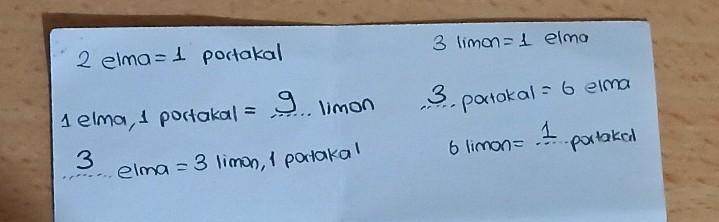 2 elma = 1 portakal
3 limon = 1 elma
1 elma, 1 portakal = ..9.. limon
..3.. portakal = 6 elma
..3.. elma = 3 limon, 1 portakal
6 limon = ..1.. portakal